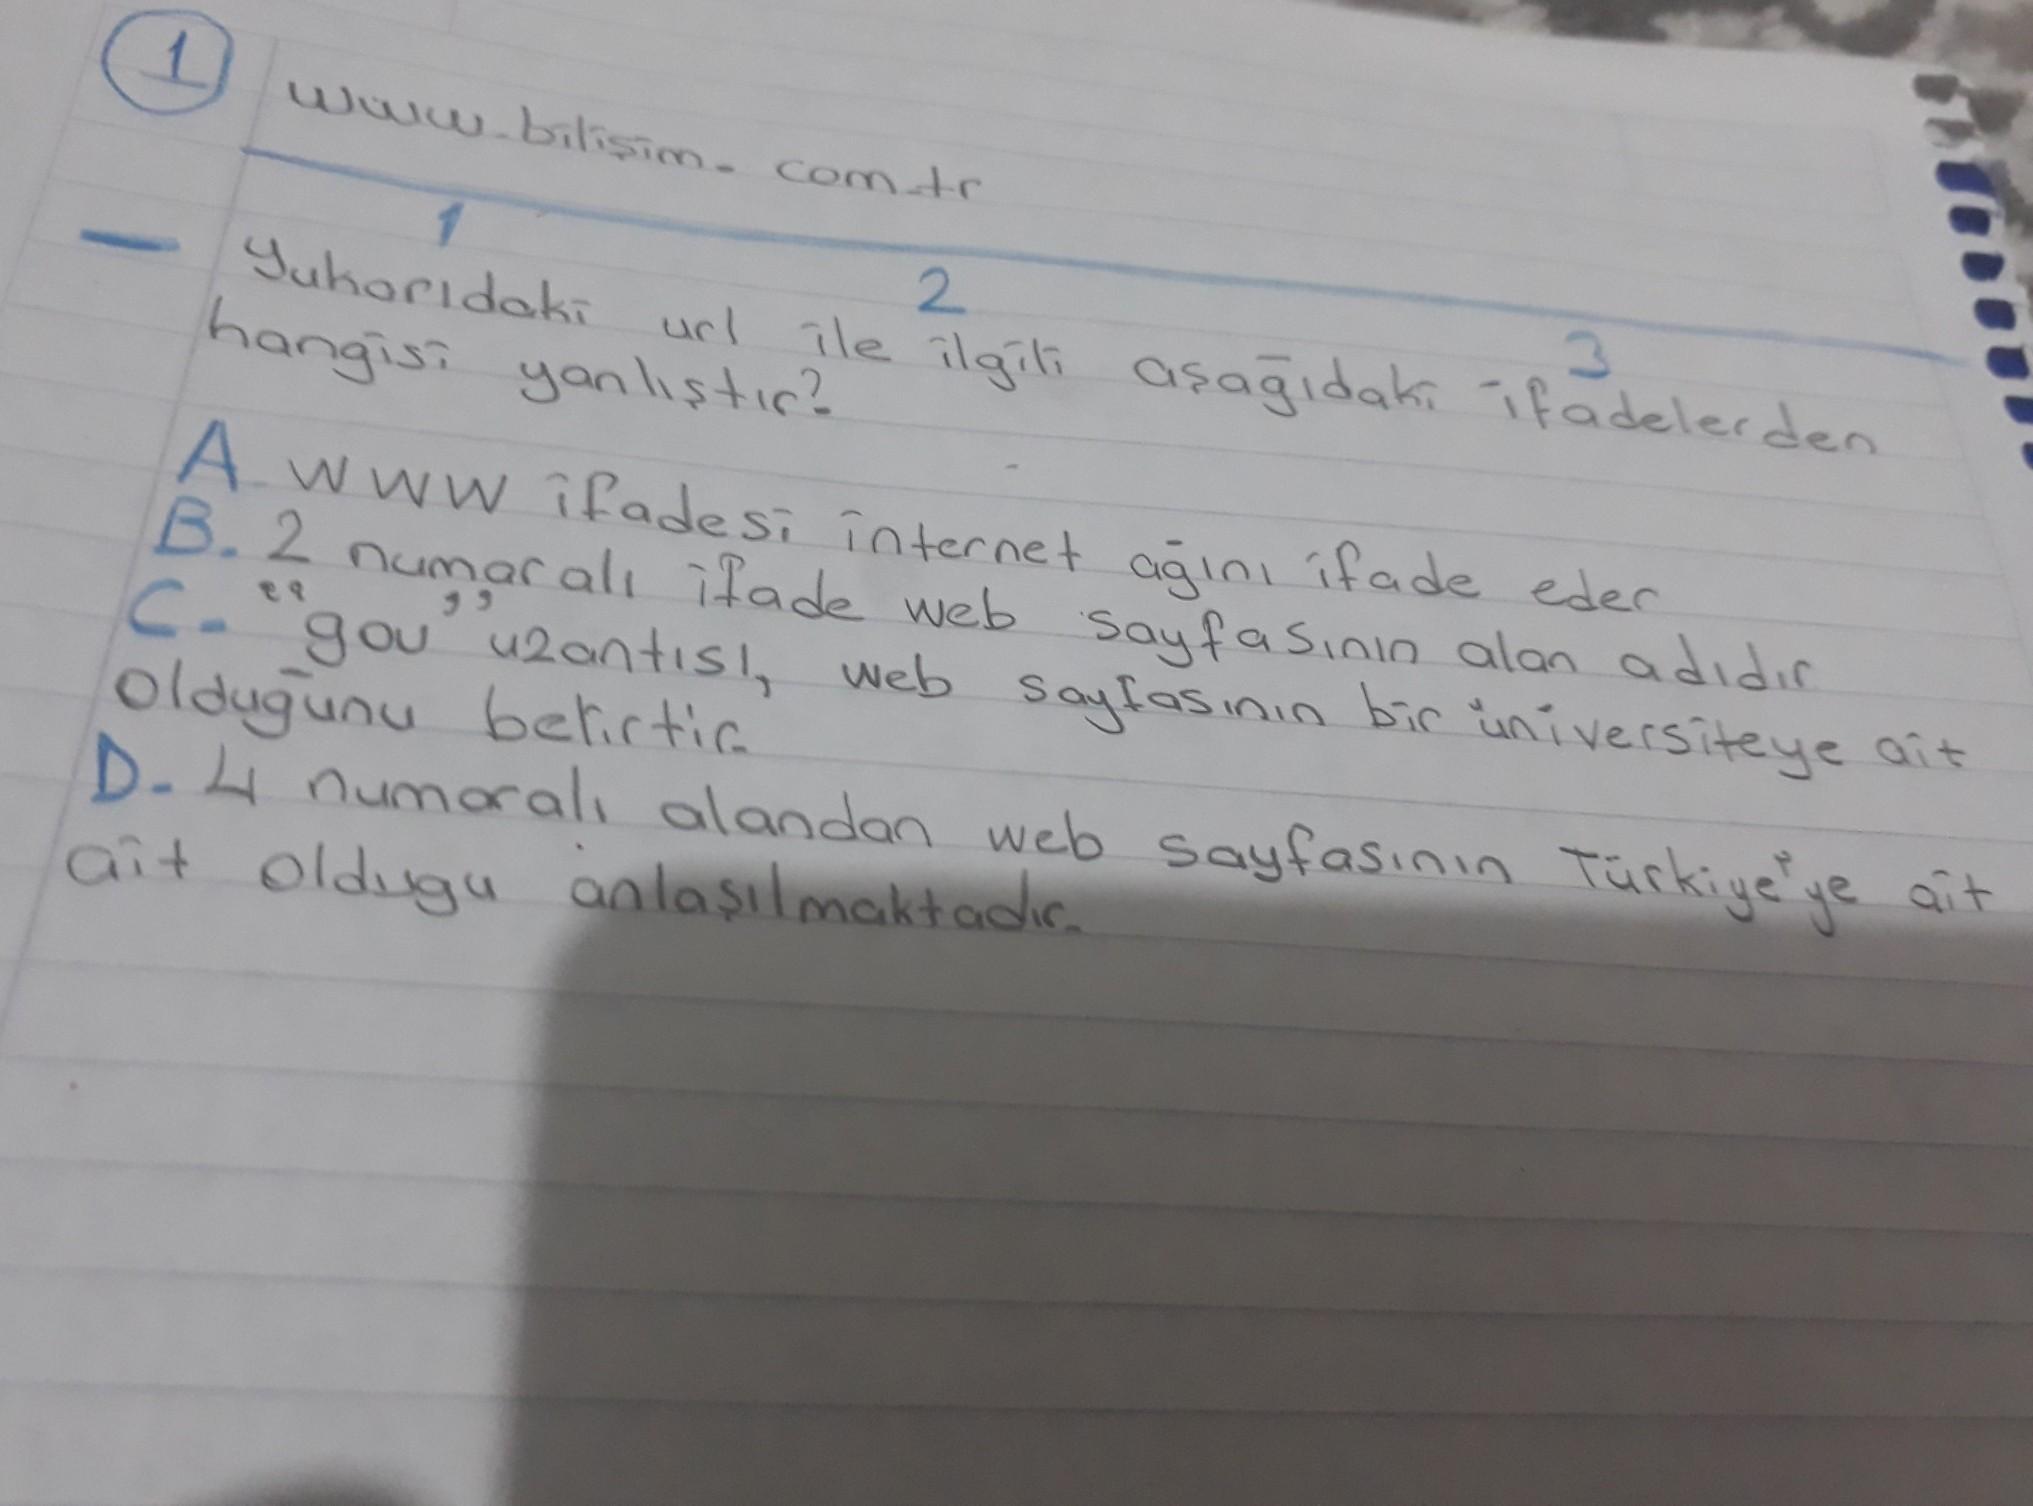 1
www.bilişim.com.tr
1 2 3
Yukarıdaki url ile ilgili aşağıdaki ifadelerden
hangisi yanlıştır?
A www ifadesi internet ağını ifade eder
B. 2 numaralı ifade web sayfasının alan adıdır
C- "gov" uzantısı, web sayfasının bir üniversiteye ait
olduğunu belirtir.
D. 4 numaralı alandan web sayfasının Türkiye'ye ait
ait oldugu anlaşılmaktadır.